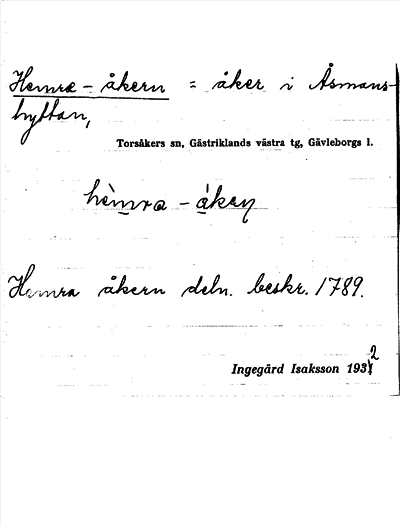 Hemra-åkern = åker i Åsmans-
hyttan,
Torsåkers sn, Gästriklands västra tg, Gävleborgs l.
hèmra-åkeɳ
Hemra åkern deln. beskr. 1789.
Ingegärd Isaksson 1932